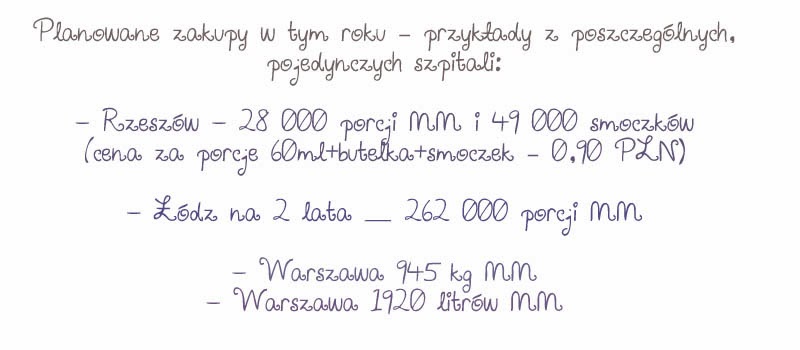 Planowane zakupy w tym roku – przykłady z poszczególnych,
pojedynczych szpitali:
– Rzeszów – 28 000 porcji MM i 49 000 smoczków
(cena za porcje 60ml+butelka+smoczek – 0,90 PLN)
– Łódz na 2 lata __ 262 000 porcji MM
– Warszawa 945 kg MM
– Warszawa 1920 litrów MM